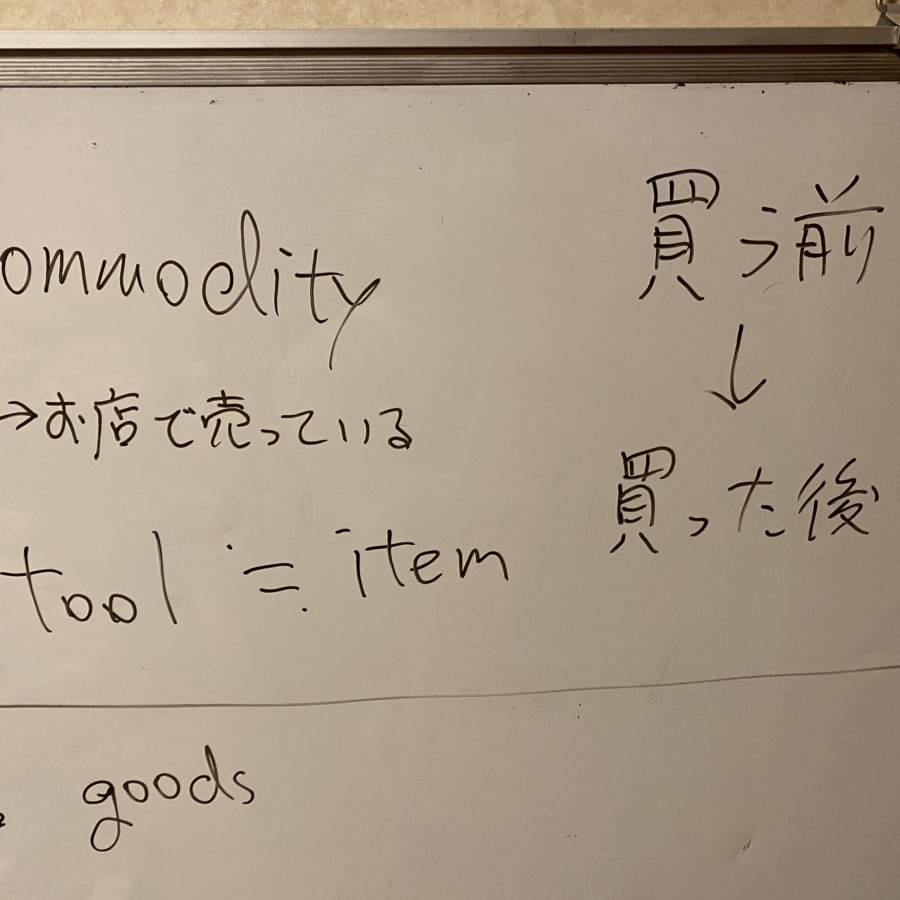 ommodity
→お店で売っている
tool ≒ item
買う前
↓
買った後
goods